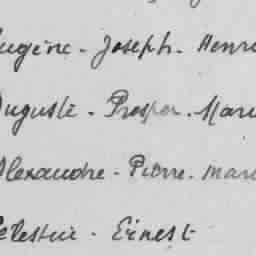 Eugène - Joseph - Henri
Auguste - Prosper - Mari
Alexandre - Pierre - mari
Celestin - Ernest